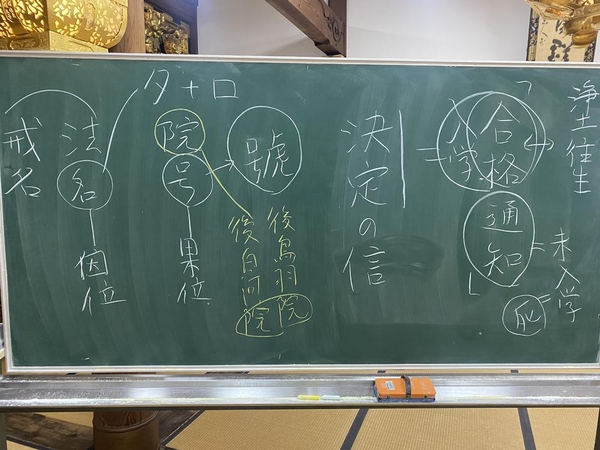 浄土往生
「合格
入学
通知」
未入学
決定の信
號
後鳥羽院
後白河院
院号
果位
夕+口
法名
因位
戒名